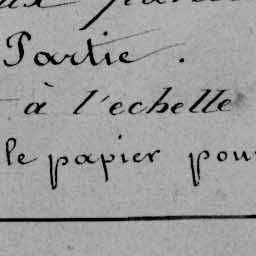 Partie .
à l'echelle
le papier pour